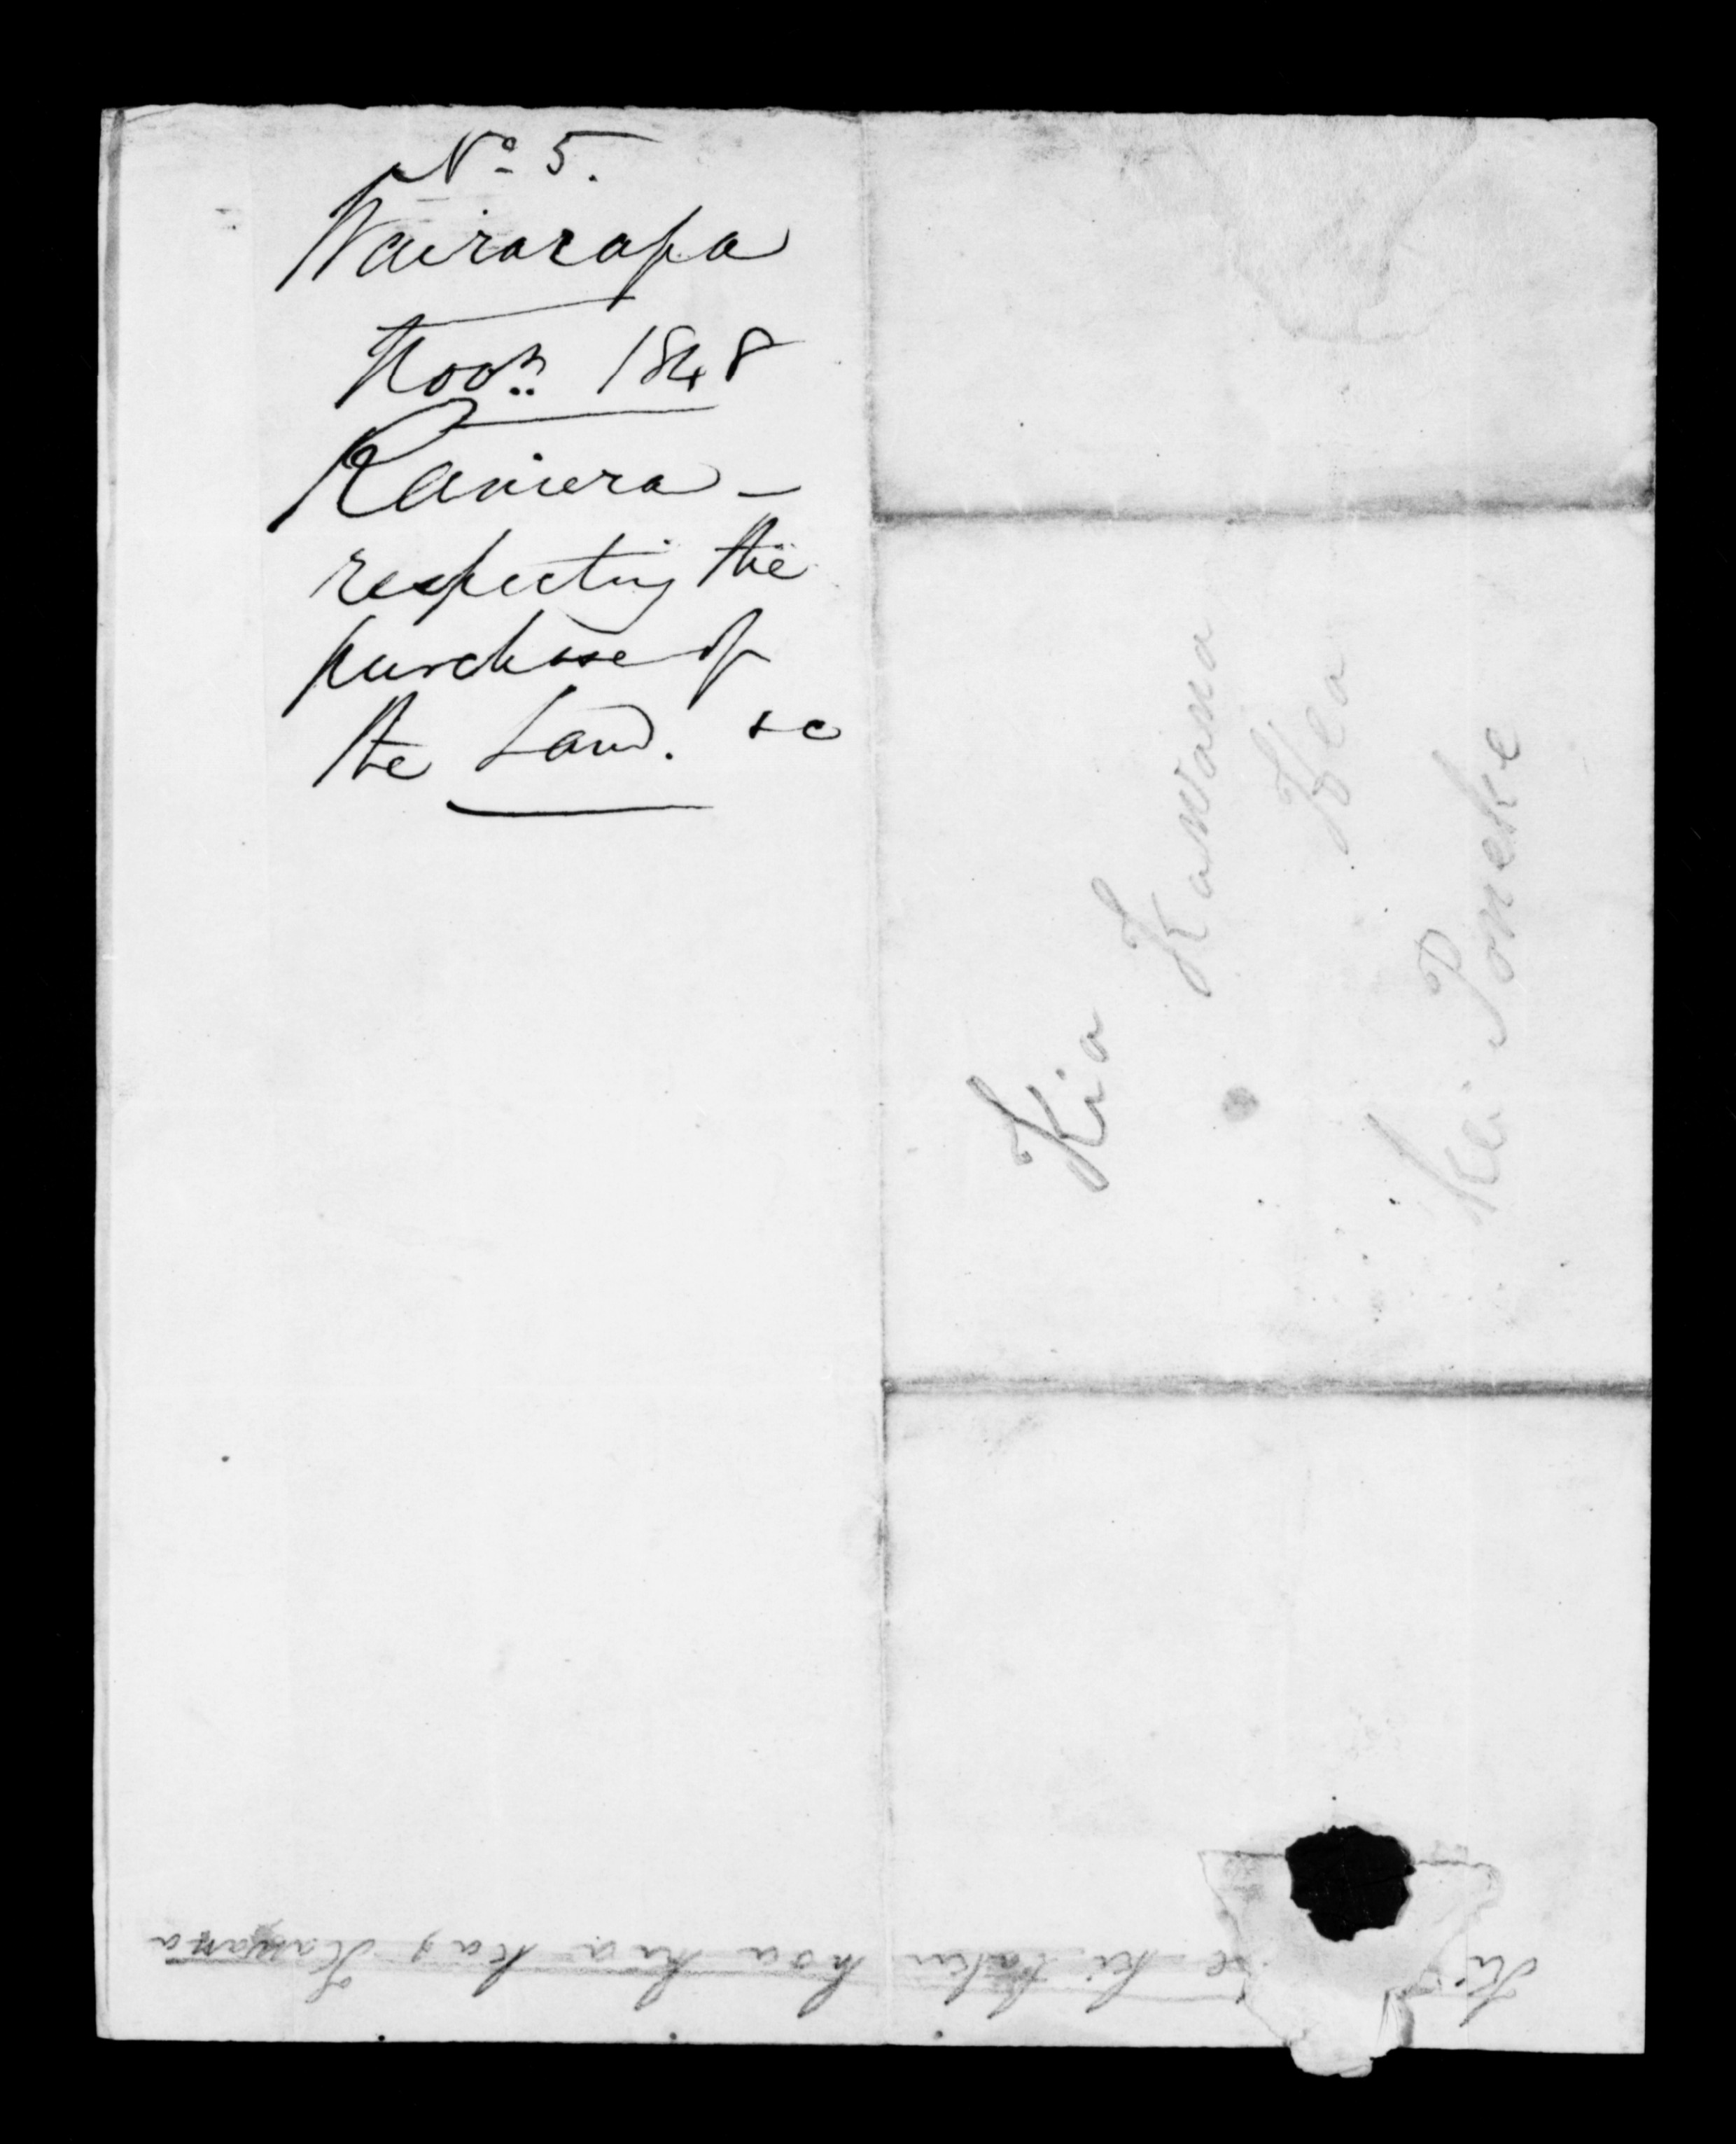 No 5.
Wairarapa
Novr. 1848
Raniera -
respecting the
purchase of
the Land. &c
Kia
Kawana
Hea
Kei Poneke
ki taku hoa kia Kawana